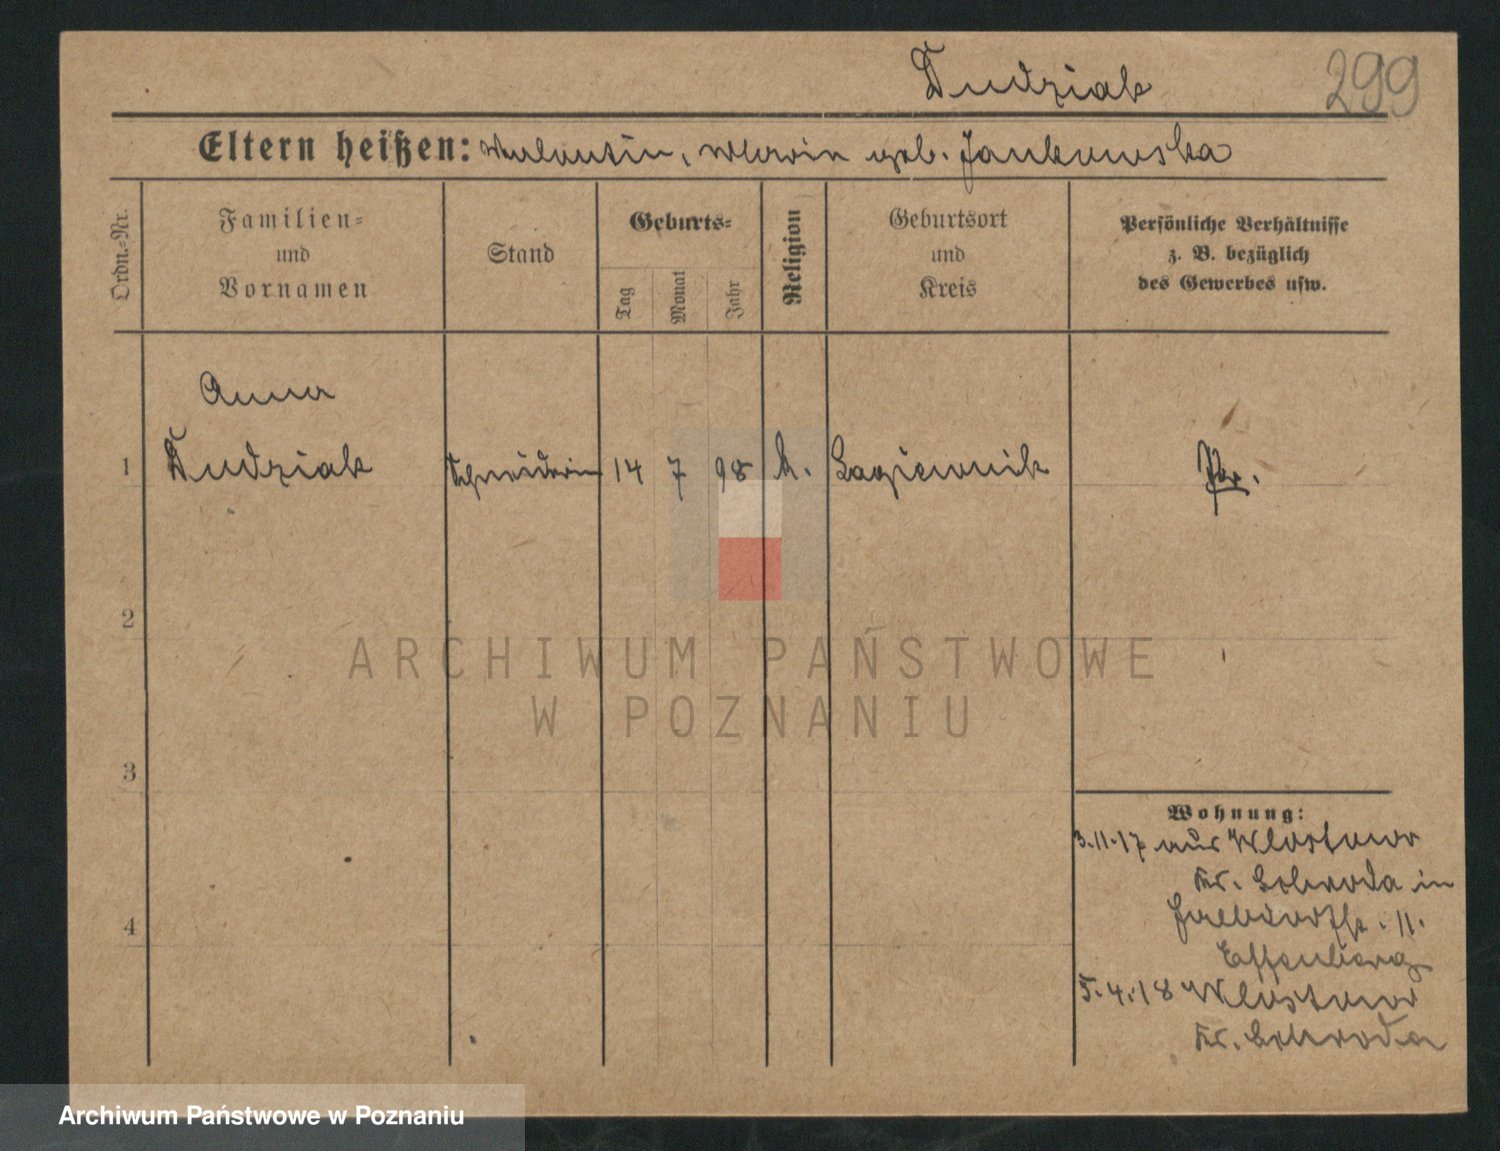 Dudziak
299
Eltern heißen: Valentin, Maria geb. Jankowska
Ordn.-Nr.
Familien-
und
Vornamen
Stand
Geburts-
Tag
Monat
Jahr
Religion
Geburtsort
und
Kreis
Persönliche Verhältnisse
z. B. bezüglich
des Gewerbes usw.
Anna
1 Dudziak Schneiderin 14 7 98 k. Lagiewnik Pr.
2
3
4
Wohnung:
3.11.17 aus Wlostowo
Kr. Schroda in
11.
Effenberg
5.4.18 Wlostowo
Kr. Schroda
ARCHIWUM PAŃSTWOWE
W POZNANIU
Archiwum Państwowe w Poznaniu